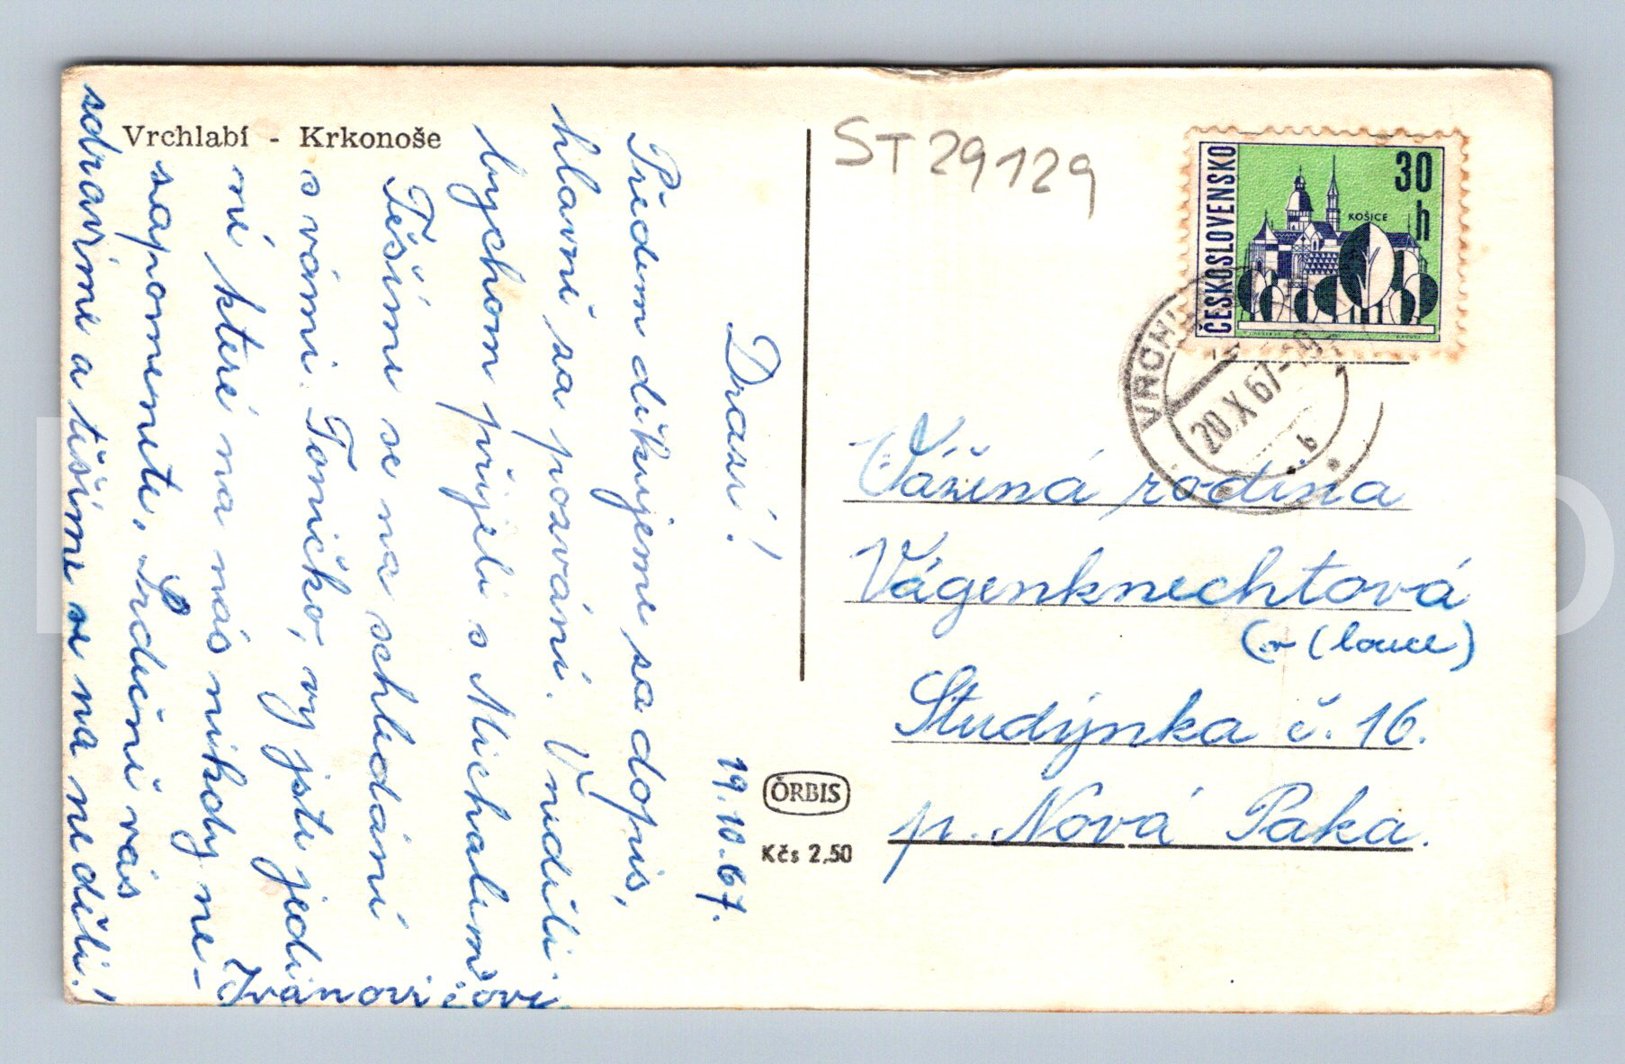 Vrchlabí - Krkonoše
19.10.67.
Drazí!
Předem děkujeme za dopis,
hlavně za pozvání. V neděli
bychom přijeli s Michalem
Těšíme se na schledání
s vámi. Toničko, vy jste jedi
ní které na nás nikdy ne-
zapomenete. Srdečně vás
zdravíme a těšíme se na neděli!
Ivanovičovi
ST 29129
ČESKOSLOVENSKO
30
h
KOŠICE
20.X.67-19
b
Vážená rodina
Vágenknechtová
Studýnka č. 16.
p. Nová Paka.
ORBIS
Kčs 2,50